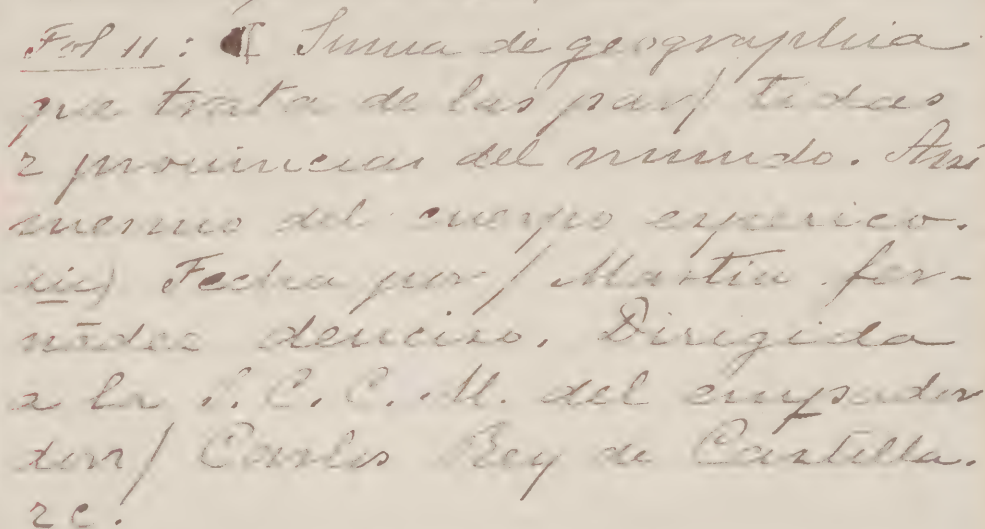 Fol 11: ¶ Suma de geographia
que trata de las par/ tidas
z prouincias del mundo. Ansi
mesmo del cuerpo esperico.
sic) Fecha por/ Martin fer-
nãdez denciso. Dirigida
a la S. C. C. M. del
don/ Carlos Rey de Castilla.
zc.